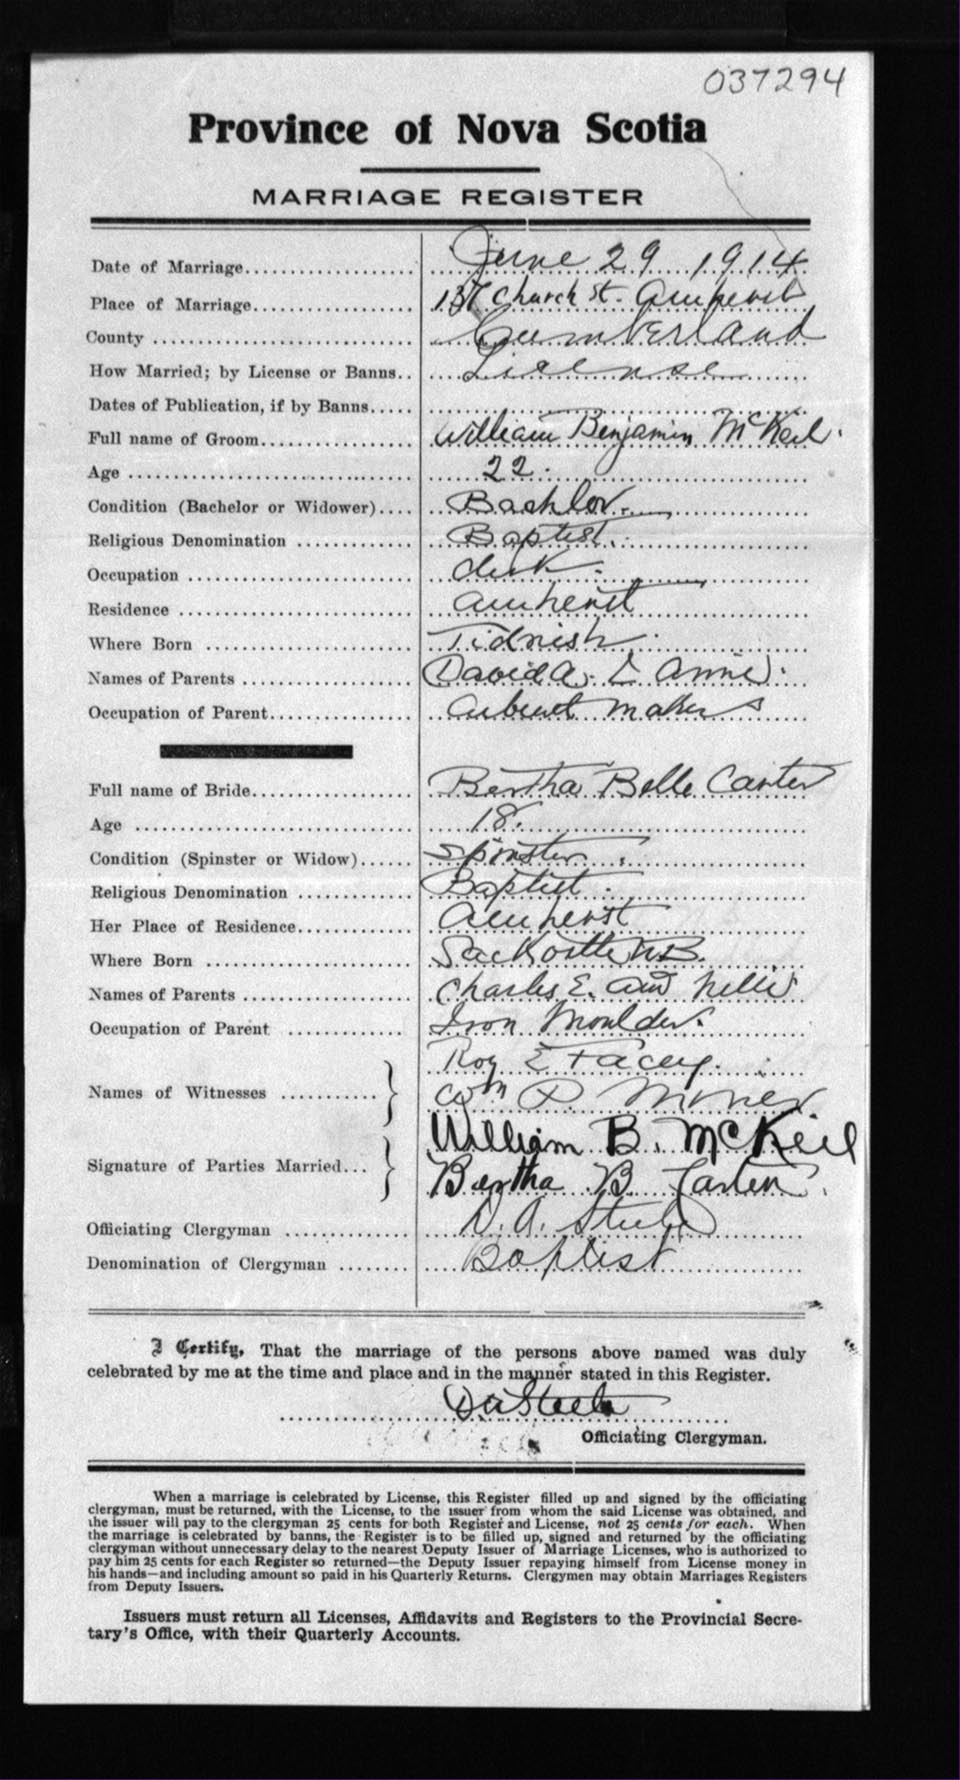 037294
Province of Nova Scotia
MARRIAGE REGISTER
Date of Marriage.................... June 29 1914
Place of Marriage................... 137 Church St. Amherst
County .............................. Cumberland
How Married; by License or Banns.. License
Dates of Publication, if by Banns.....
Full name of Groom.................. William Benjamin McKeil.
Age ................................. 22.
Condition (Bachelor or Widower).... Bachlor.
Religious Denomination .............. Baptist.
Occupation .......................... Clerk.
Residence ........................... Amherst
Where Born .......................... Tidnish.
Names of Parents .................... David A. & Annie.
Occupation of Parent................. Cabinet maker
Full name of Bride................... Bertha Belle Carter
Age ................................. 18.
Condition (Spinster or Widow)...... Spinster.
Religious Denomination .............. Baptist.
Her Place of Residence.............. Amherst
Where Born .......................... Sackville N.B.
Names of Parents .................... Charles E. and Nellie
Occupation of Parent ................ Iron Moulder.
Roy E Facey.
Names of Witnesses ...........
Wm P.
William B. McKeil
Signature of Parties Married...
Bertha B. Carter.
Officiating Clergyman ............... D. A. Steele
Denomination of Clergyman ........ Baptist
I Certify, That the marriage of the persons above named was duly
celebrated by me at the time and place and in the manner stated in this Register.
D A Steele
Officiating Clergyman.
When a marriage is celebrated by License, this Register filled up and signed by the officiating
clergyman, must be returned, with the License, to the issuer from whom the said License was obtained, and
the issuer will pay to the clergyman 25 cents for both Register and License, not 25 cents for each. When
the marriage is celebrated by banns, the Register is to be filled up, signed and returned by the officiating
clergyman without unnecessary delay to the nearest Deputy Issuer of Marriage Licenses, who is authorized to
pay him 25 cents for each Register so returned—the Deputy Issuer repaying himself from License money in
his hands—and including amount so paid in his Quarterly Returns. Clergymen may obtain Marriages Registers
from Deputy Issuers.
Issuers must return all Licenses, Affidavits and Registers to the Provincial Secre-
tary's Office, with their Quarterly Accounts.